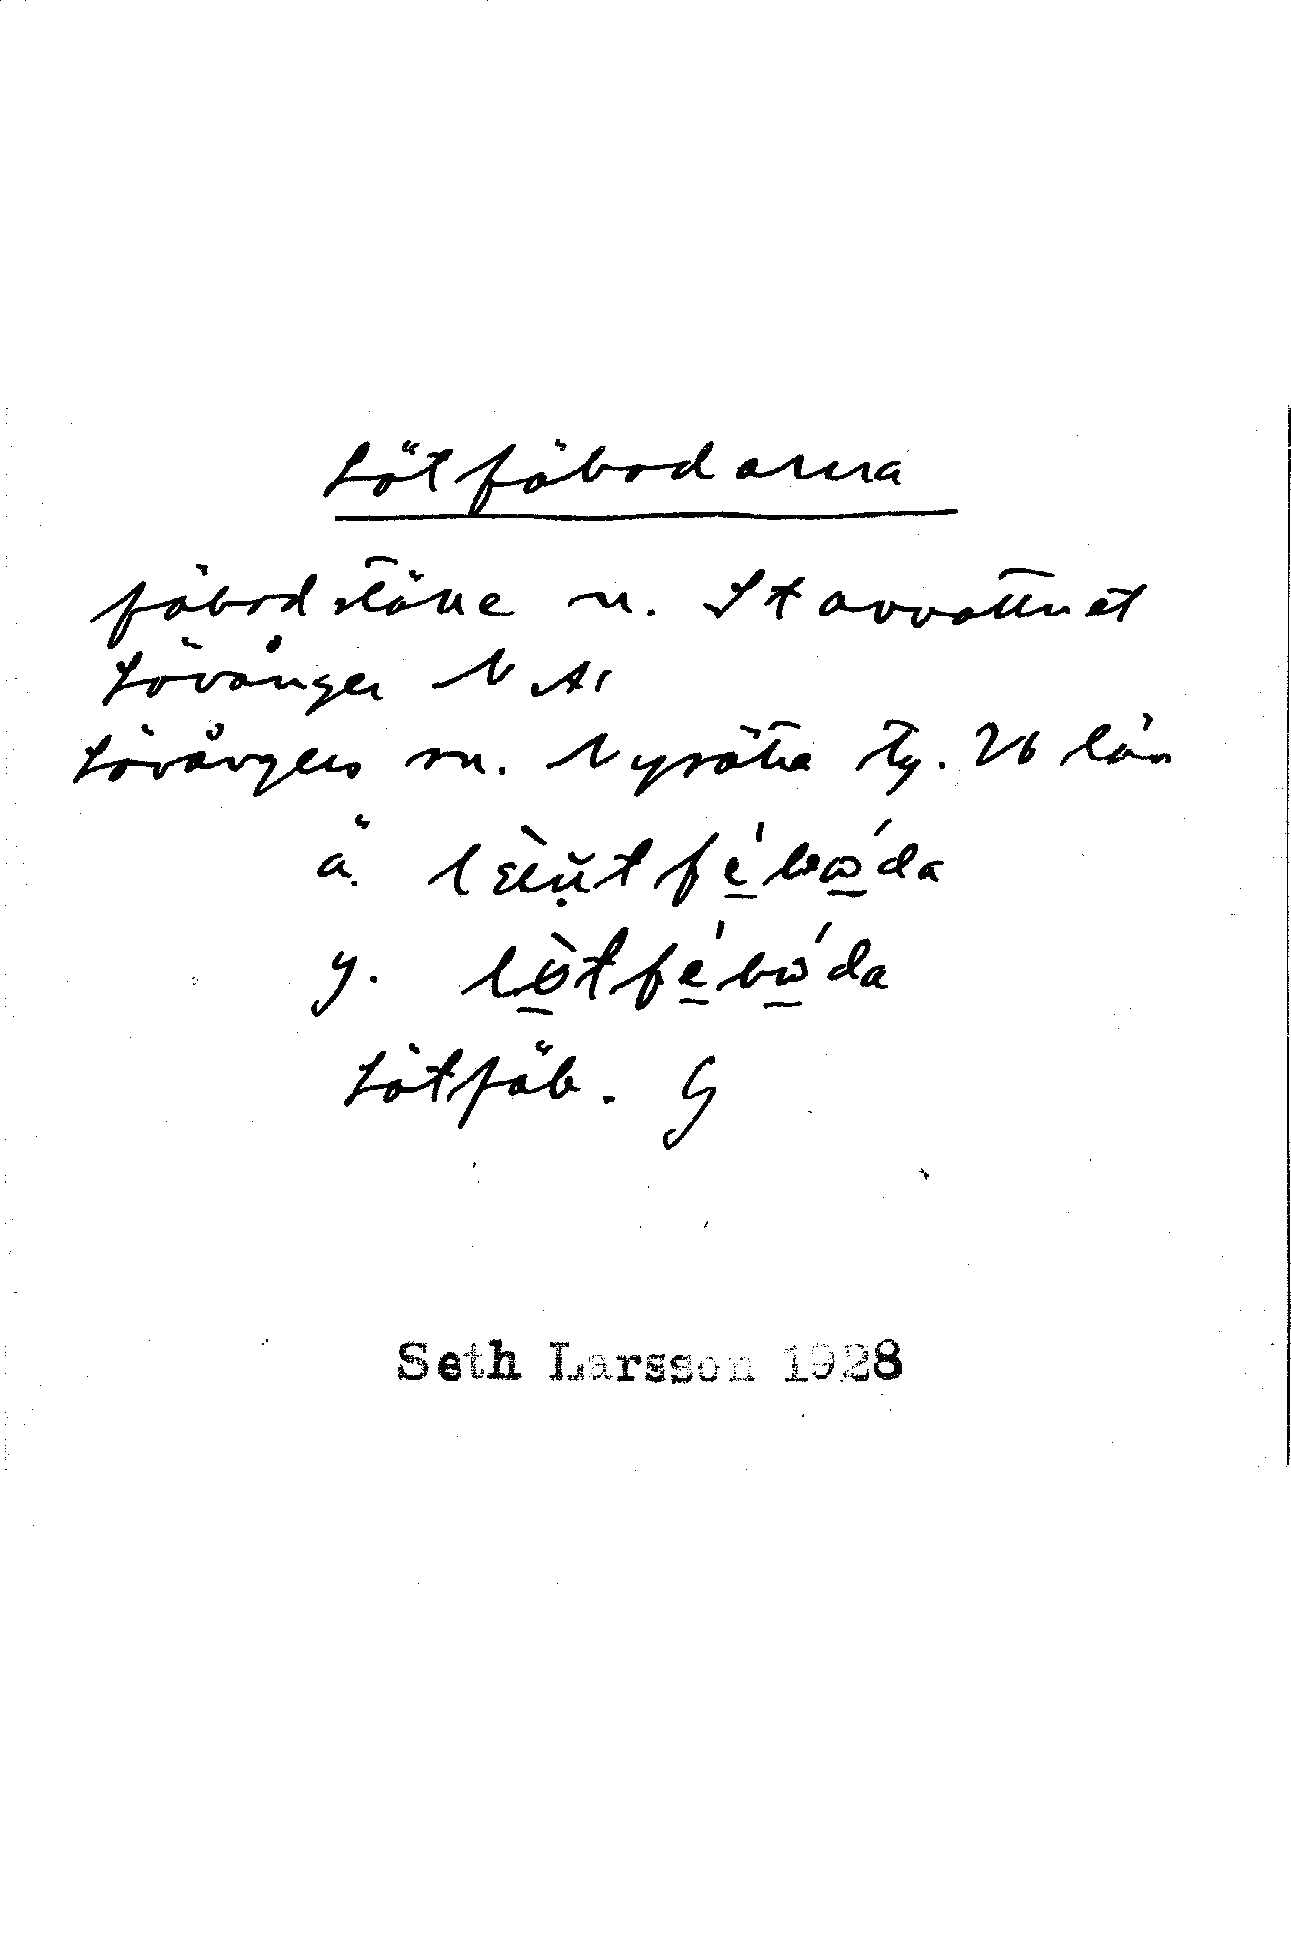 Lötfäbodarna
fäbodställe n. Stavvattnet
Lövånger N
Lövångers sn. Nysätra tg. Vb län
ä. lɛ̀ŭtfébώ̱da
y. lötfébώ̱da
Lötfäb. G
Seth Larsson 1928